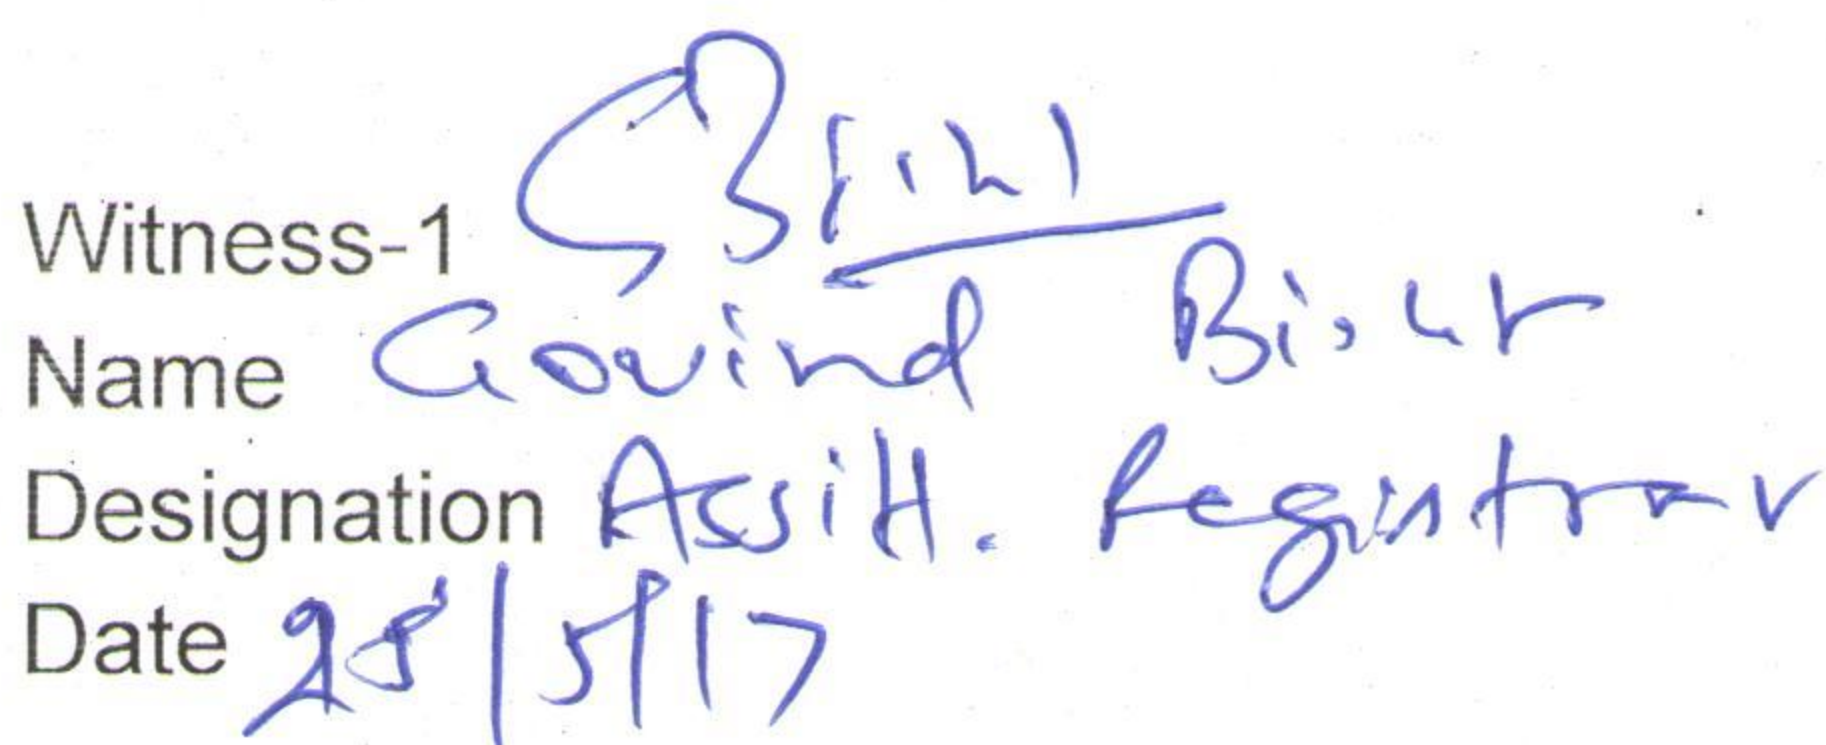 Witness-1
Name Govind Bisht
Designation Assitt. Registrar
Date 28/5/17